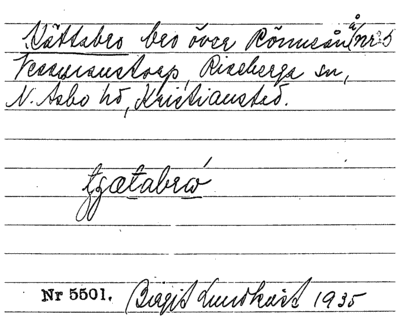 Kättabro bro över Rönneån å nr 5
Vessmanstorp, Riseberga sn,
N. Asbo hd, Kristianstad.
Nr 5501. Birgit Lundkvist 1935